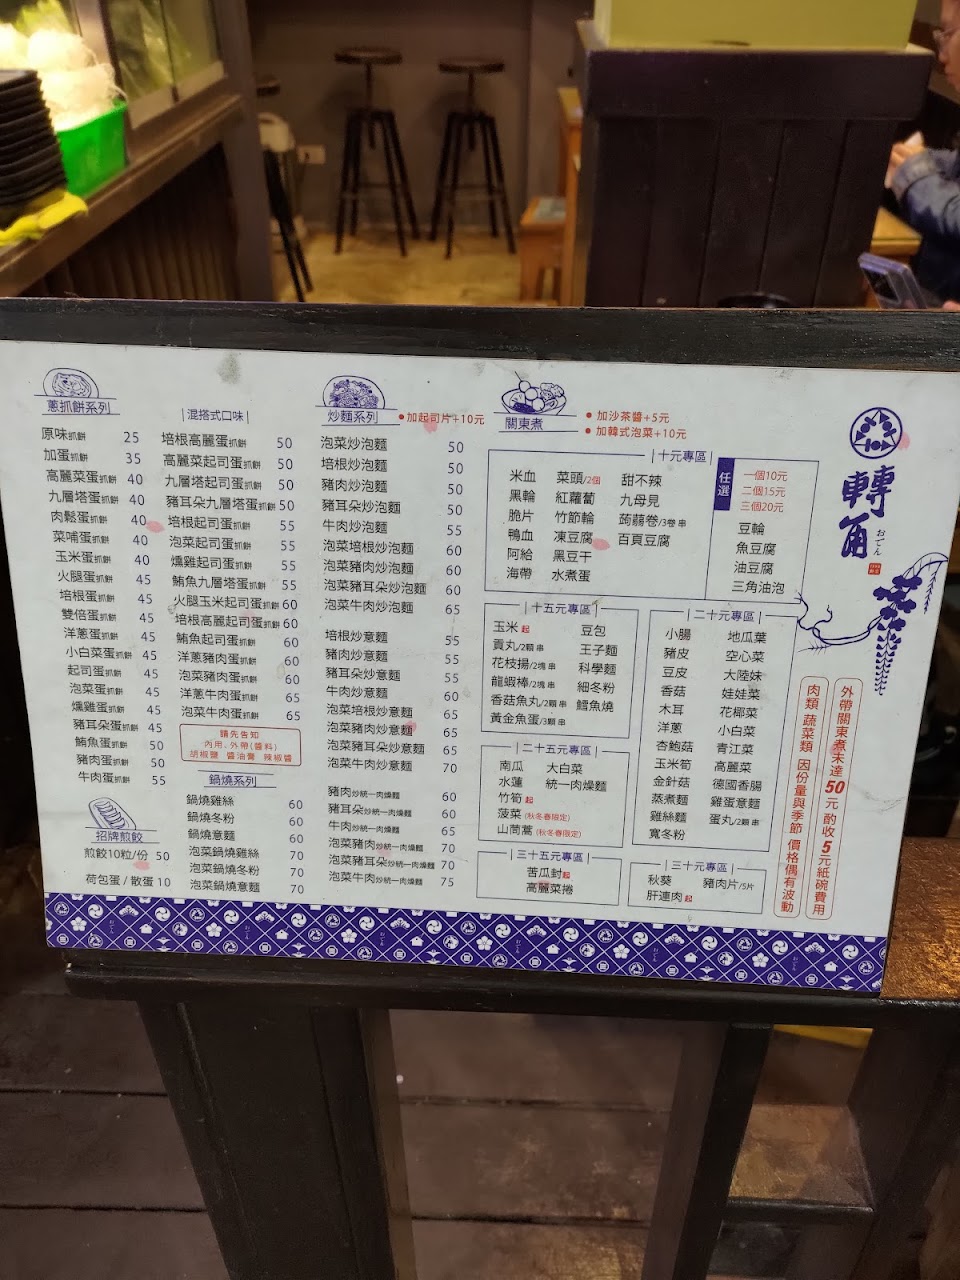 蔥抓餅系列
原味抓餅 25
加蛋抓餅 35
高麗菜蛋抓餅 40
九層塔蛋抓餅 40
肉鬆蛋抓餅 40
菜哺蛋抓餅 40
玉米蛋抓餅 40
火腿蛋抓餅 45
培根蛋抓餅 45
雙倍蛋抓餅 45
洋蔥蛋抓餅 45
小白菜蛋抓餅 45
起司蛋抓餅 45
泡菜蛋抓餅 45
燻雞蛋抓餅 45
豬耳朵蛋抓餅 45
鮪魚蛋抓餅 50
豬肉蛋抓餅 50
牛肉蛋抓餅 55
招牌煎餃
煎餃10粒/份 50
荷包蛋 / 散蛋 10
|混搭式口味|
培根高麗蛋抓餅 50
高麗菜起司蛋抓餅 50
九層塔起司蛋抓餅 50
豬耳朵九層塔蛋抓餅 50
培根起司蛋抓餅 55
泡菜起司蛋抓餅 55
燻雞起司蛋抓餅 55
鮪魚九層塔蛋抓餅 55
火腿玉米起司蛋抓餅 60
培根高麗起司蛋抓餅 60
鮪魚起司蛋抓餅 60
洋蔥豬肉蛋抓餅 60
泡菜豬肉蛋抓餅 60
洋蔥牛肉蛋抓餅 65
泡菜牛肉蛋抓餅 65
請先告知
內用、外帶(醬料)
胡椒鹽 醬油膏 辣椒醬
鍋燒系列
鍋燒雞絲 60
鍋燒冬粉 60
鍋燒意麵 60
泡菜鍋燒雞絲 70
泡菜鍋燒冬粉 70
泡菜鍋燒意麵 70
炒麵系列 ●加起司片+10元
泡菜炒泡麵 50
培根炒泡麵 50
豬肉炒泡麵 50
豬耳朵炒泡麵 50
牛肉炒泡麵 55
泡菜培根炒泡麵 60
泡菜豬肉炒泡麵 60
泡菜豬耳朵炒泡麵 60
泡菜牛肉炒泡麵 65
培根炒意麵 55
豬肉炒意麵 55
豬耳朵炒意麵 55
牛肉炒意麵 60
泡菜培根炒意麵 65
泡菜豬肉炒意麵 65
泡菜豬耳朵炒意麵 65
泡菜牛肉炒意麵 70
豬肉炒統一肉燥麵 60
豬耳朵炒統一肉燥麵 60
牛肉炒統一肉燥麵 65
泡菜豬肉炒統一肉燥麵 70
泡菜豬耳朵炒統一肉燥麵 70
泡菜牛肉炒統一肉燥麵 75
關東煮
●加沙茶醬+5元
●加韓式泡菜+10元
|十元專區|
米血 菜頭/2個 甜不辣
黑輪 紅蘿蔔 九母見
脆片 竹節輪 蒟蒻卷/3卷 串
鴨血 凍豆腐 百頁豆腐
阿給 黑豆干
海帶 水煮蛋
任選
一個10元
二個15元
三個20元
豆輪
魚豆腐
油豆腐
三角油泡
|十五元專區|
玉米起 豆包
貢丸/2顆 串 王子麵
花枝揚/2塊 串 科學麵
龍蝦棒/2塊 串 細冬粉
香菇魚丸/2顆 串 鱈魚燒
黃金魚蛋/3顆 串
|二十五元專區|
南瓜 大白菜
水蓮 統一肉燥麵
竹筍起
菠菜(秋冬春限定)
山茼蒿(秋冬春限定)
|三十五元專區|
苦瓜封起
高麗菜捲
|二十元專區|
小腸 地瓜葉
豬皮 空心菜
豆皮 大陸妹
香菇 娃娃菜
木耳 花椰菜
洋蔥 小白菜
杏鮑菇 青江菜
玉米筍 高麗菜
金針菇 德國香腸
蒸煮麵 雞蛋意麵
雞絲麵 蛋丸/2顆 串
寬冬粉
|三十元專區|
秋葵 豬肉片/5片
肝連肉起
轉角
おでん
外帶關東煮未達50元 酌收5元紙碗費用
肉類 蔬菜類 因份量與季節 價格偶有波動